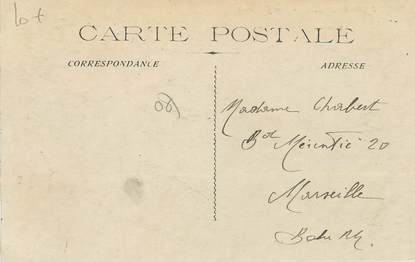 Lot
CARTE POSTALE
CORRESPONDANCE
ADRESSE
Madame Chabert
Bd Mérentié 20
Marseille